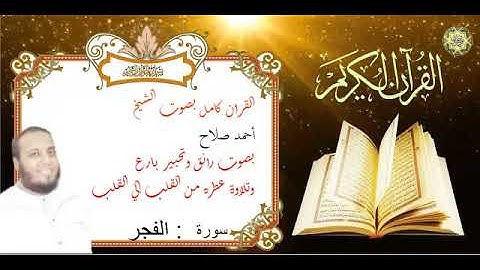 القرآن الكريم
القران كامل بصوت الشيخ
أحمد صلاح
بصوت رائق وتحبير بارع
وتلاوة عطره من القلب الي القلب
سورة : الفجر